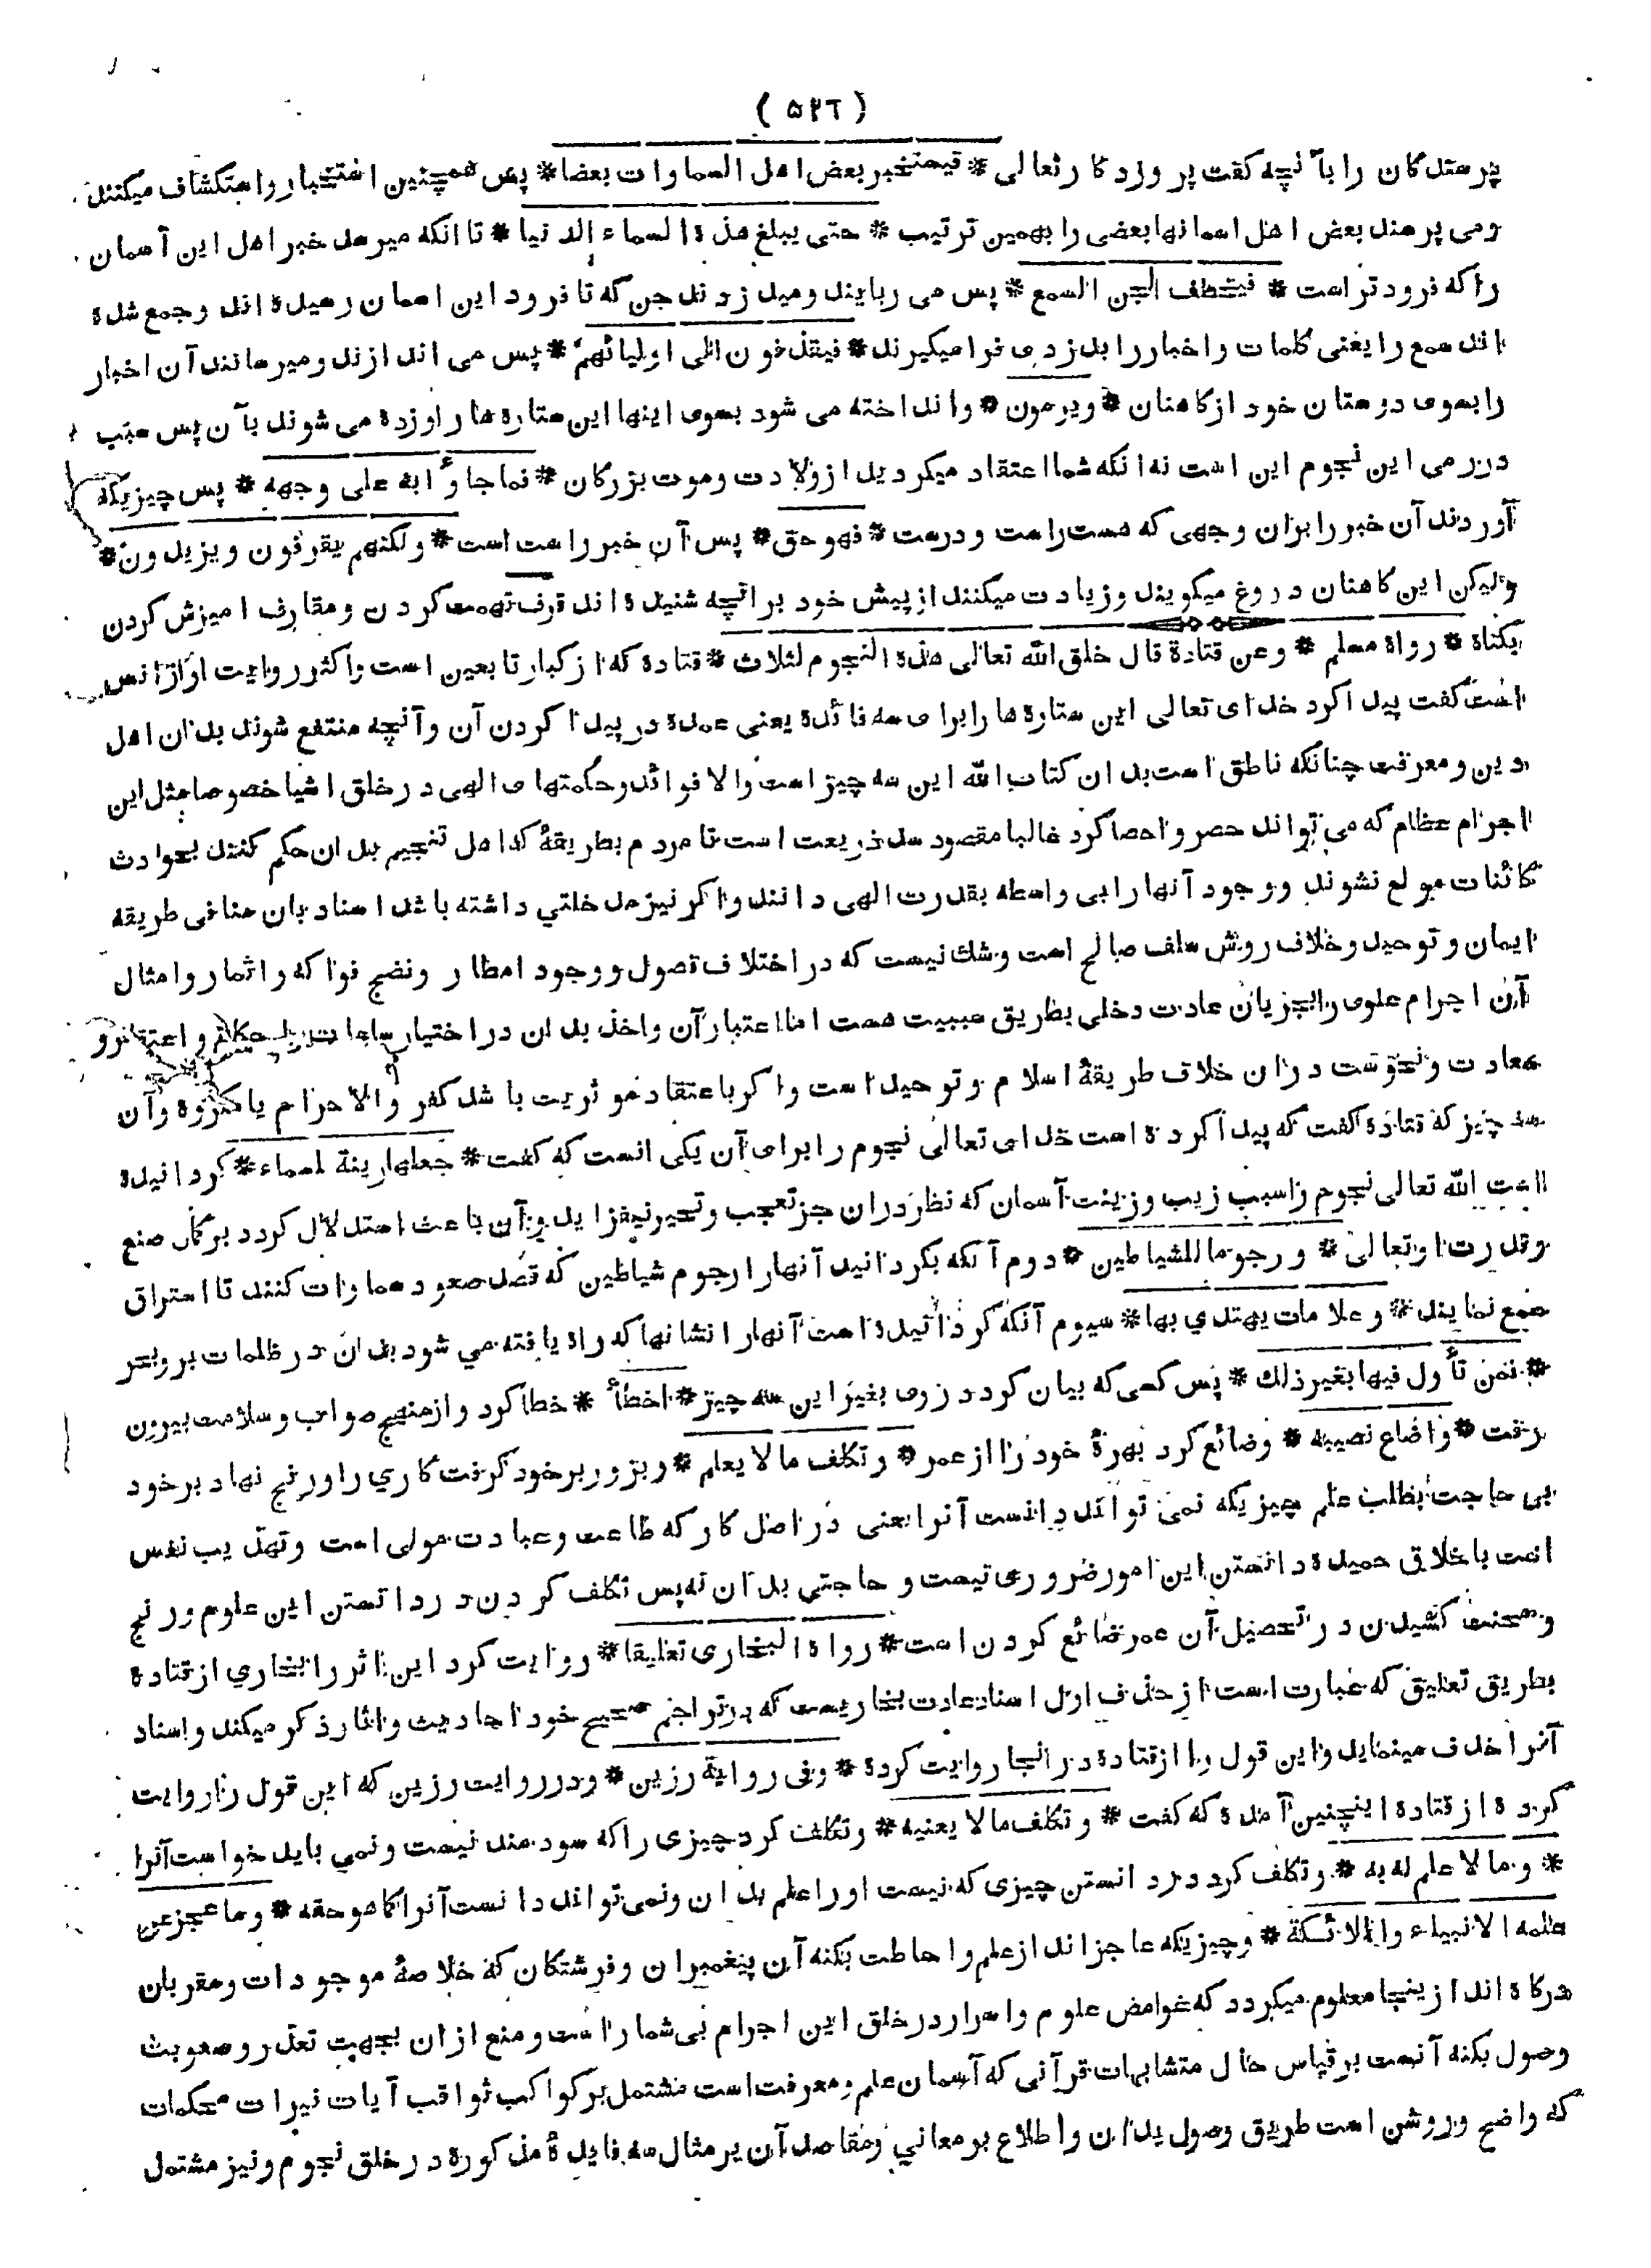 ( ۵۲٦ )
پرسندکان را بآنچه کفت پروردکار تعالی * فیستخبر بعض اهل السماوات بعضا * پس همچنین استخبار و استکشاف میکنند
و می پرسند بعض اهل اسمانها بعضی را بهمین ترتیب * حتی یبلغ هذه السماء الدنیا * تا انکه میرسد خبر اهل این آسمان
را که فرود تر است * فیخطف الجن السمع * پس می ربایند و میدزدند جن که تا فرود این اسمان رسیده اند و جمع شده
اند سمع را یعنی کلمات و اخبار را بدزدی فرا میکیرند * فیقذفون الی اولیائهم * پس می اندازند و میرسانند آن اخبار
را بسوی دوستان خود از کاهنان * و یرمون * و انداخته می شود بسوی اینها این ستاره ها را و زده می شوند بآن پس سبب
در رمی این نجوم این است نه انکه شما اعتقاد میکردید از ولادت و موت بزرکان * فما جاؤا به علی وجهه * پس چیزیکه
آوردند آن خبر را بران وجهی که هست راست و درست * فهو حق * پس آن خبر راست است * ولکنهم یقرفون و یزیدون *
ولیکن این کاهنان دروغ میکویند و زیادت میکنند از پیش خود بر انچه شنیده اند قرف تهمت کردن و مقارف امیزش کردن
بکناه * رواه مسلم * و عن قتادة قال خلق الله تعالی هذه النجوم لثلاث * قتاده که از کبار تابعین است و اکثر روایت او از انس
است کفت پیدا کرد خدای تعالی این ستاره ها را برای سه فائده یعنی عمده در پیدا کردن آن و آنچه منتفع شوند بدان اهل
دین و معرفت چنانکه ناطق است بدان کتاب الله این سه چیز است والا فوائد و حکمتهای الهی در خلق اشیا خصوصا مثل این
اجرام عظام که می تواند حصر و احصا کرد غالبا مقصود سد ذریعت است تا مردم بطریقۀ که اهل تنجیم بدان حکم کنند بحوادث
کائنات مولع نشوند و وجود آنها را بی واسطه بقدرت الهی دانند و اکر نیز مدخلتي داشته باشد اسناد بان منافی طریقه
ایمان و توحید و خلاف روش سلف صالح است و شك نیست که در اختلاف فصول و وجود امطار و نضج فواکه و اثمار و امثال
آن اجرام علوی را بجریان عادت دخلی بطریق سببیت هست اما اعتبار آن و اخذ بدان در اختیار ساعات و اعتقاد
سعادت و نحوست دران خلاف طریقۀ اسلام و توحید است و اکر با عتقاد مو ثریت باشد کفر و الا حرام یا مکروه و آن
سه چیز که قتاده کفت که پیدا کرده است خدای تعالی نجوم را برای آن یکی انست که کفت * جعلها زینة لسماء * کردانیده
است الله تعالی نجوم را سبب زیب و زینت آسمان که نظر دران جز تعجب و تحیر نیفزاید و آن باعث استدلال کردد بر کمال صنع
و قدرت او تعالی * و رجوما للشیاطین * دوم آنکه بکردانید آنها را رجوم شیاطین که قصد صعود سماوات کنند تا استراق
سمع نمایند * و علامات یهتدي بها * سیوم آنکه کردانیده است آنها را نشانها که راه یافته مي شود بدان در ظلمات بر و بحر
* فمن تأول فیها بغیر ذلك * پس کسی که بیان کرد در وی بغیر این سه چیز * اخطأ * خطا کرد و از منهج صواب و سلامت بیرون
رفت * و اضاع نصیبه * و ضائع کرد بهرۀ خود را از عمر * و تکلف ما لا یعلم * و بزور بر خود کرفت کاري را و رنج نهاد بر خود
بی حاجت بطلب علم چیزیکه نمی تواند دانست آنرا یعنی در اصل کار که طاعت و عبادت مولی است و تهذیب نفس
است باخلاق حمیده دانستن این امور ضروری نیست و حاجتي بدان نه پس تکلف کردن در دانستن این علوم و رنج
و محنت کشیدن در تحصیل آن عمر ضائع کردن است * رواه البخاری تعلیقا * روایت کرد این اثر را بخاري از قتاده
بطریق تعلیق که عبارت است از حذف اول اسناد عادت بخاریست که در تراجم صحیح خود احادیث و اثار ذکر میکند و اسناد
آنرا حذف مینماید و این قول را از قتاده در انجا روایت کرده * و فی روایة رزین * و در روایت رزین که این قول را روایت
کرده از قتاده اینچنین آمده که کفت * و تکلف ما لا یعنیه * و تکلف کرد چیزی را که سودمند نیست و نمي باید خواست آنرا
* و ما لا علم له به * و تکلف کرد در دانستن چیزی که نیست او را علم بدان و نمی تواند دانست آنرا کما هو حقه * و ما عجز عن
علمه الانبیاء و الملائکة * و چیزیکه عاجز اند از علم و احاطت بکنه آن پیغمبران و فرشتکان که خلاصۀ موجودات و مقربان
درکاه اند از ینجا معلوم میکردد که غوامض علوم و اسرار در خلق این اجرام بی شمار است و منع ازان بجهت تعذر و صعوبت
وصول بکنه آنست بر قیاس حال متشابهات قرآنی که آسمان علم و معرفت است مشتمل بر کواکب ثواقب آیات نیرات محکمات
که واضح و روشن است طریق وصول بدان و اطلاع بر معاني و مقاصد آن بر مثال سه فایدۀ مذکوره در خلق نجوم و نیز مشتمل